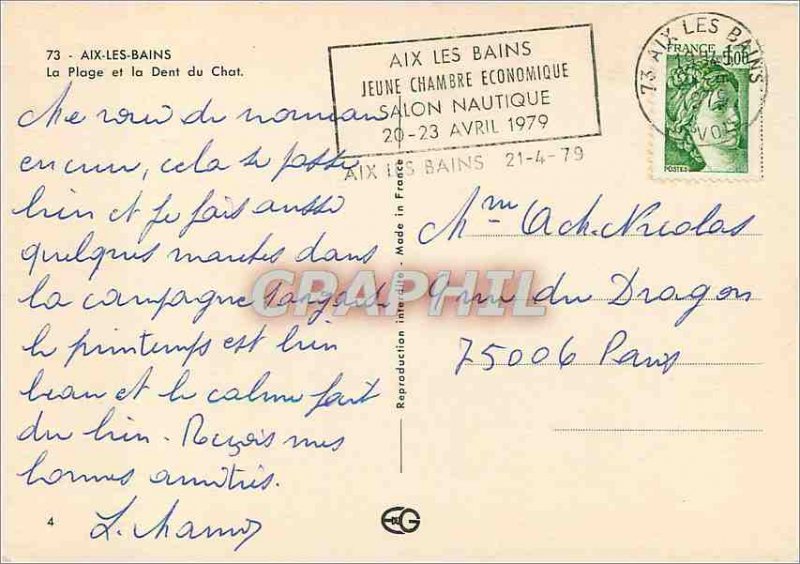 73 - AIX-LES-BAINS
La Plage et la Dent du Chat.
Me voici de nouveau
en cure, cela se passe
bien et je fais aussi
quelques marches dans
la campagne
le printemps est bien
beau et le calme fait
du bien. Reçois mes
bonnes amitiés.
4
AIX LES BAINS
JEUNE CHAMBRE ECONOMIQUE
SALON NAUTIQUE
20-23 AVRIL 1979
AIX LES BAINS 21-4-79
73 AIX LES BAINS
FRANCE 1,00
POSTES
Reproduction interdite - Made in France
CRAPHIL
EG
Mme Nicolas
9 rue du Dragon
75006 Paris